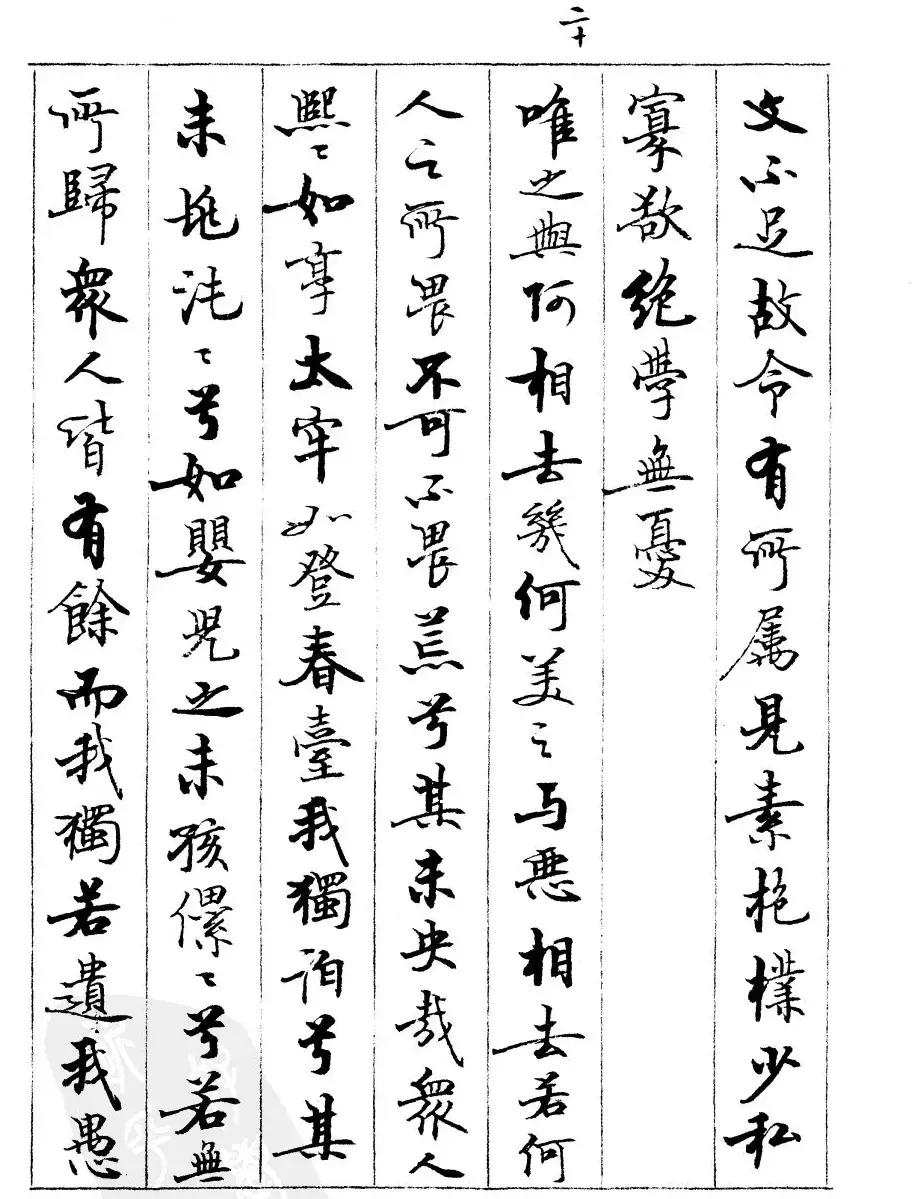 二十
文不足故令有所属見素抱樸少私
寡欲絶學無憂
唯之與阿相去幾何美之与悪相去若何
人之所畏不可不畏荒兮其未央哉衆人
熙〻如享太牢如登春臺我獨泊兮其
未兆沌〻兮如嬰児之未孩儽〻兮若無
所歸衆人皆有餘而我獨若遺我愚